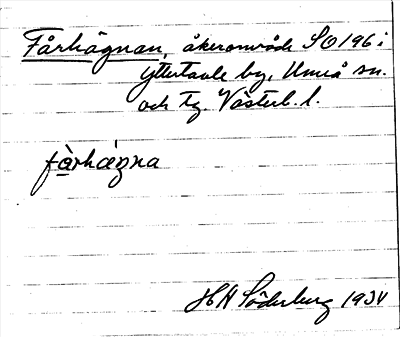 Fårhägnan, åkerområde SO 196 i
Yttertavle by, Umeå sn.
och tg. Västerb. l.
fårhägna
HH Söderberg 1934